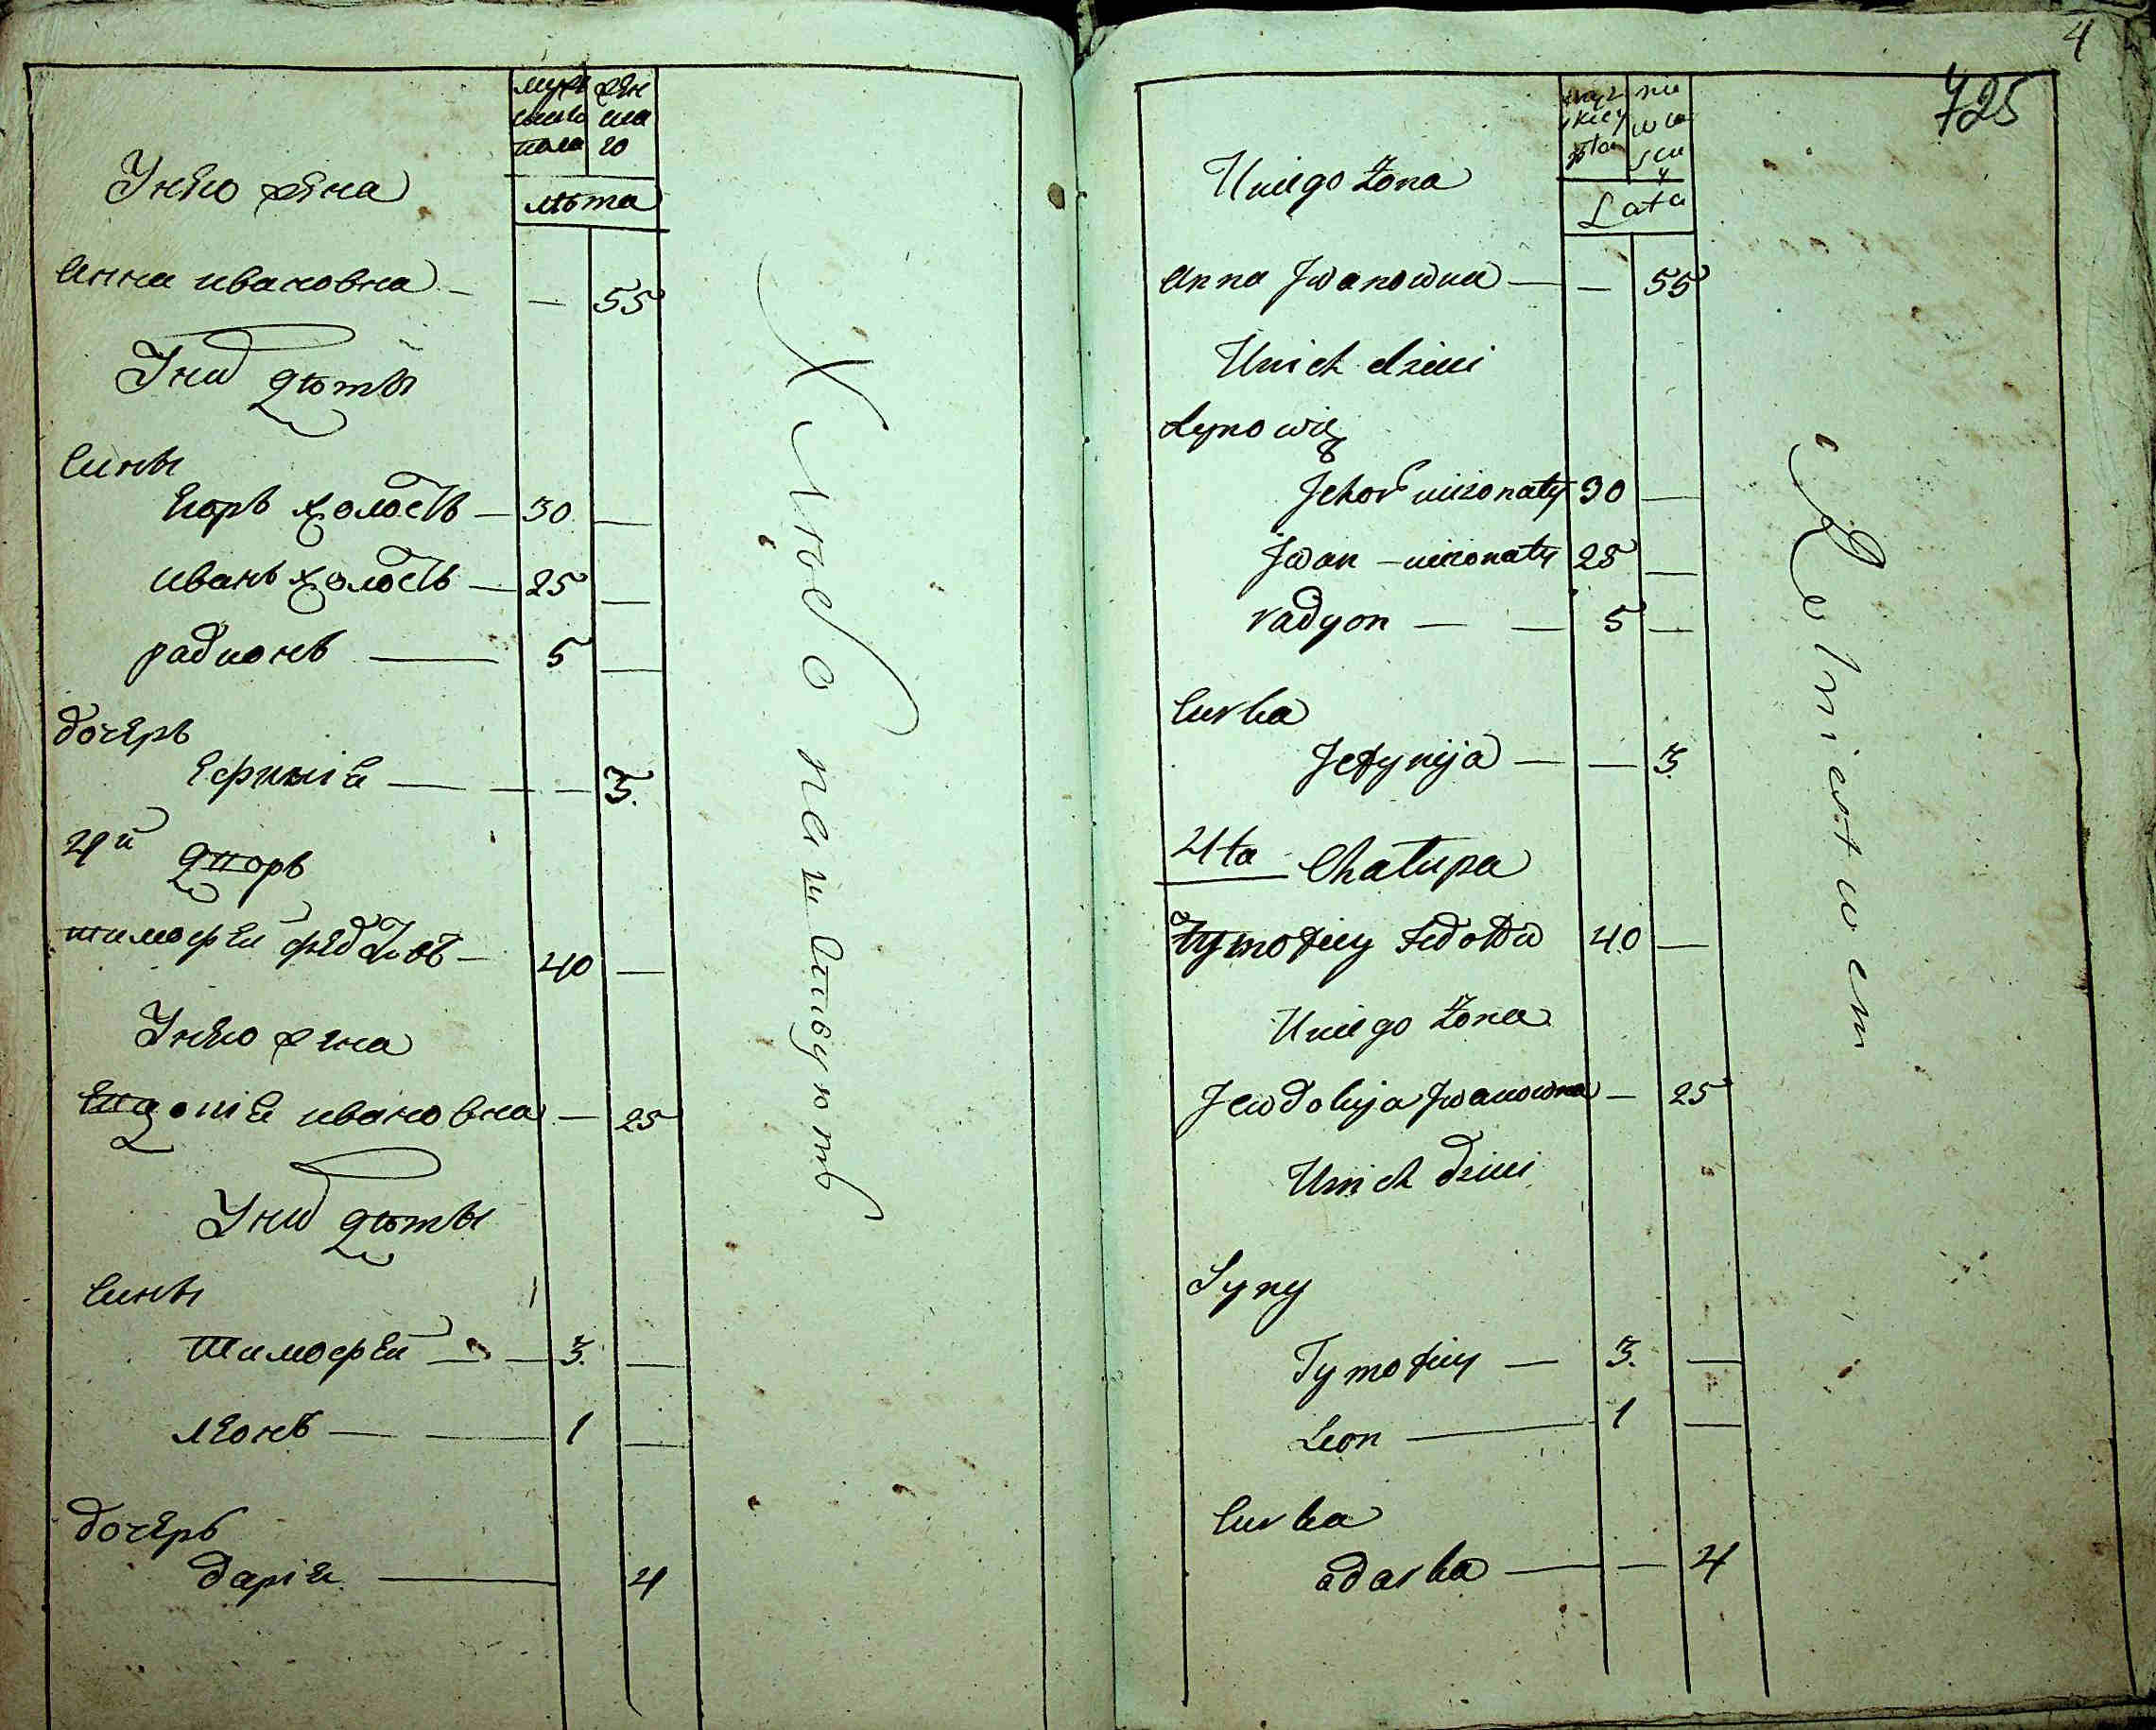 муже
ска
пола
жен
ска
го
У него жена
лѣта
Анна ивановна — — 55
У них дѣты
Сины
Егоръ холостъ — 30 —
иванъ холостъ — 25 —
радионъ — 5 —
дочеръ
Ефиміѣ — — — 3.
4й двоpъ
тимофей федотовъ — 40 —
У него жена
Евдокіѣ ивановна — 25
У них дѣты
Сины
Тимофей — — 3. —
леонъ — — 1 —
дочеръ
даріѣ — 4
Хлѣбопашествуютъ
4
725
męz
skiey
płci
nie
wia
sci
y
U niego żona
Lata
Anna Jwanowna — — 55
U nich dzieci
Synowie
Jehor nieżonaty 30 —
Jwan — nieżonaty 25 —
radyon — — 5 —
Curka
Jefymija — — 3.
4ta Chałupa
Tymofiey Fedotow 40 —
U niego żona
Jewdokija Jwanowna — 25
U nich dzieci
Syny
Tymofiey — 3. —
Leon — 1 —
Curka
adarka — — 4
Rolnictwem